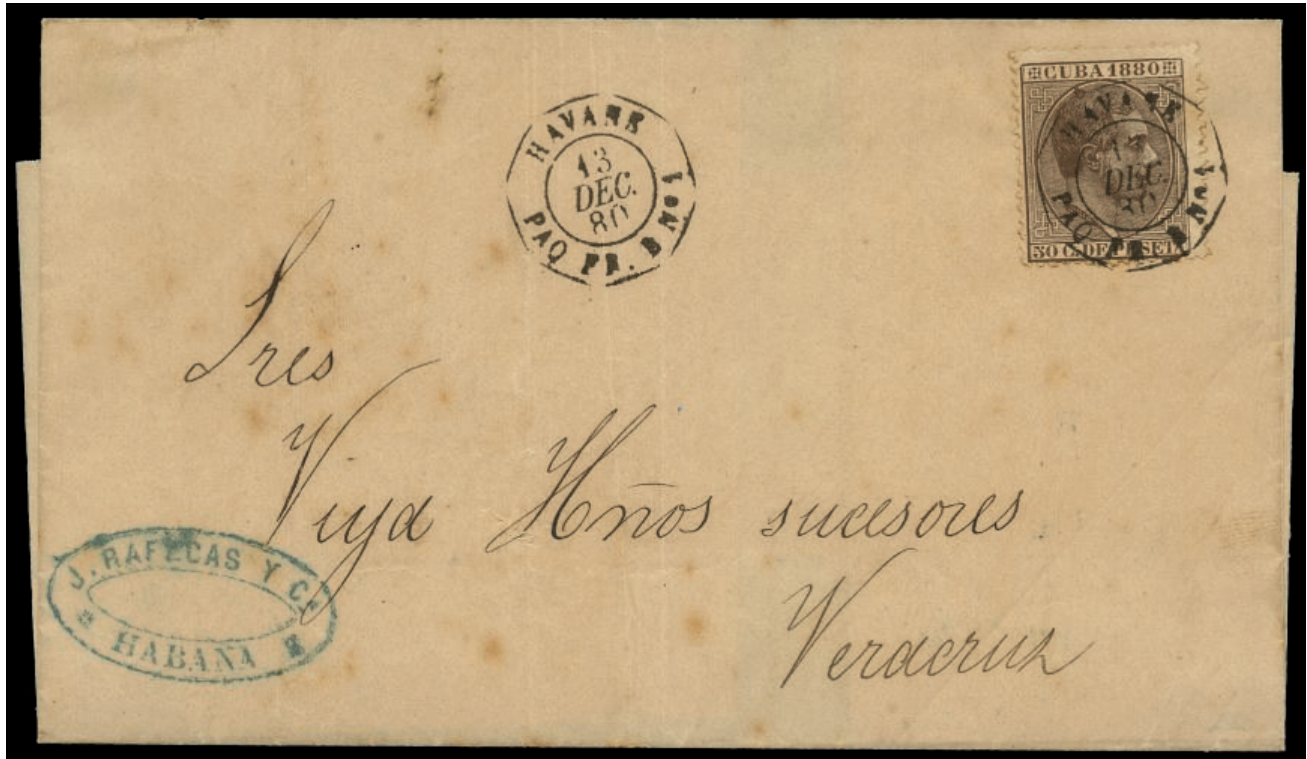 HAVANE
13
DEC.
80
PAQ FR. B No 1
CUBA 1880
HAVANE
13
DEC.
80
PAQ FR. B No 1
50 C. DE PESETA
Sres
Viya Hños sucesores
Veracruz
J. RAFECAS Y Cª
HABANA